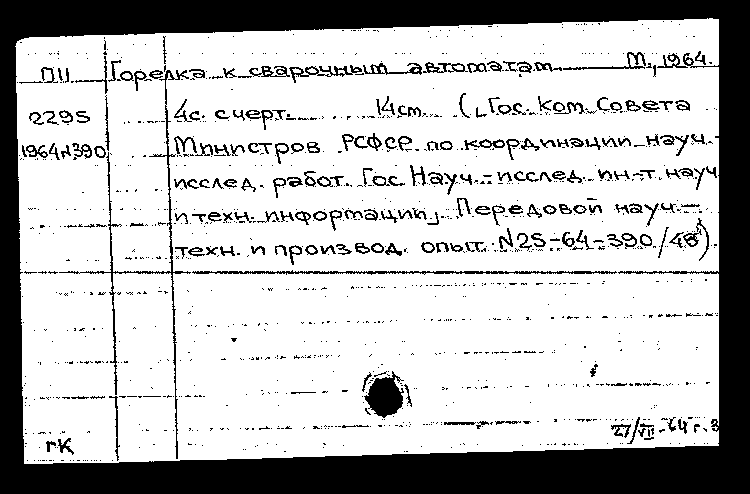 ПII Горелка к сварочным автоматам. М., 1964.
2295 4с. с черт. 14 см. (Гос. ком. Совета
1964н390 Министров РСФСР по координации науч.-
исслед. работ. Гос. Науч.-исслед. ин-т. науч
и техн. информации). Передовой науч.-
техн. и производ. опыт. N25-64-390/48).
гК 27/VII-64 г. 3